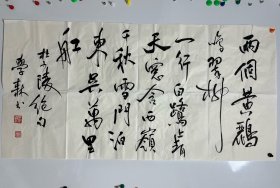 兩個黃鸝
鳴翠柳
一行白鷺上青
天窗含西嶺
千秋雪門泊
東吳萬里
船
杜少陵絕句
學森书